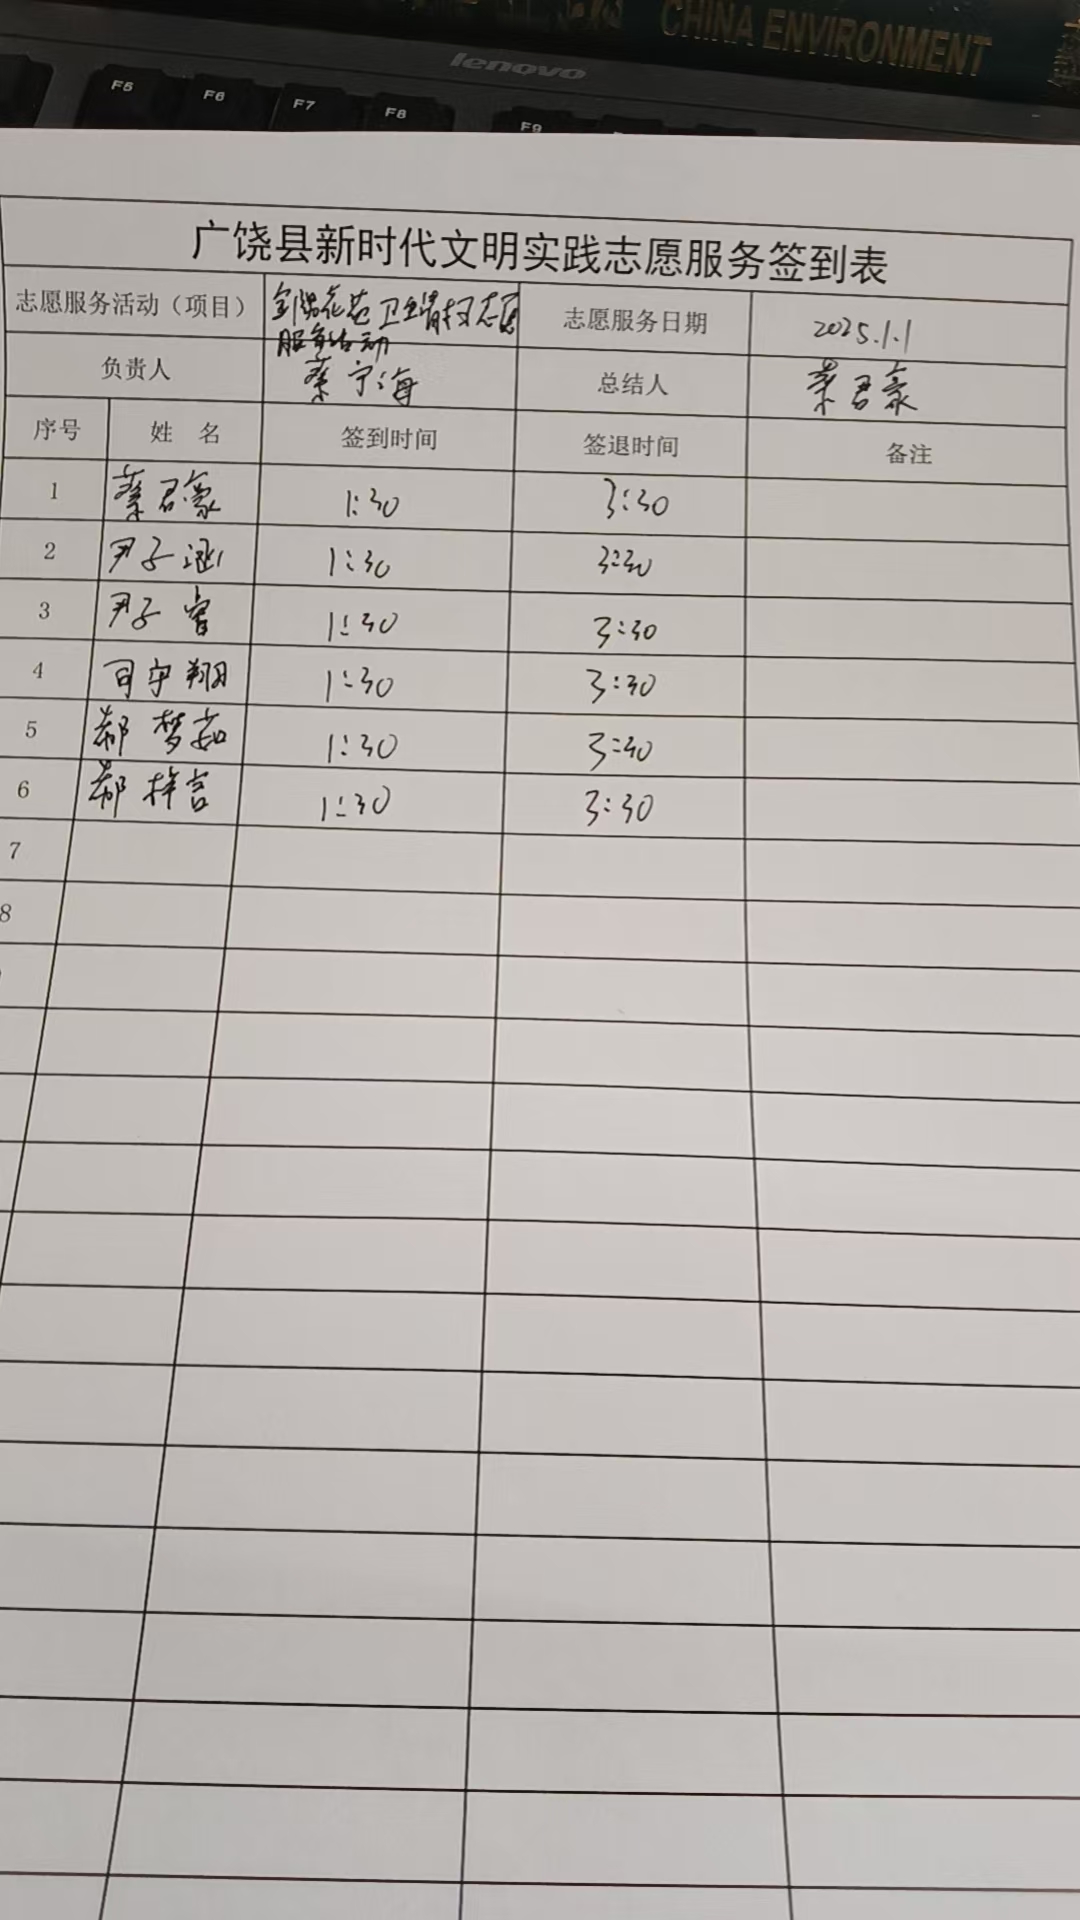 CHINA ENVIRONMENT
lenovo
F5 F6 F7 F8 F9
广饶县新时代文明实践志愿服务签到表
志愿服务活动（项目） 花苑卫生清扫志愿 志愿服务日期 2025.1.1
服务活动
负责人 蔡宁海 总结人 蔡君豪
序号 姓 名 签到时间 签退时间 备注
1 蔡君豪 1:30 3:30
2 尹子涵 1:30 3:30
3 尹子睿 1:30 3:30
4 司宇翔 1:30 3:30
5 郝梦茹 1:30 3:30
6 郝梓言 1:30 3:30
7
8